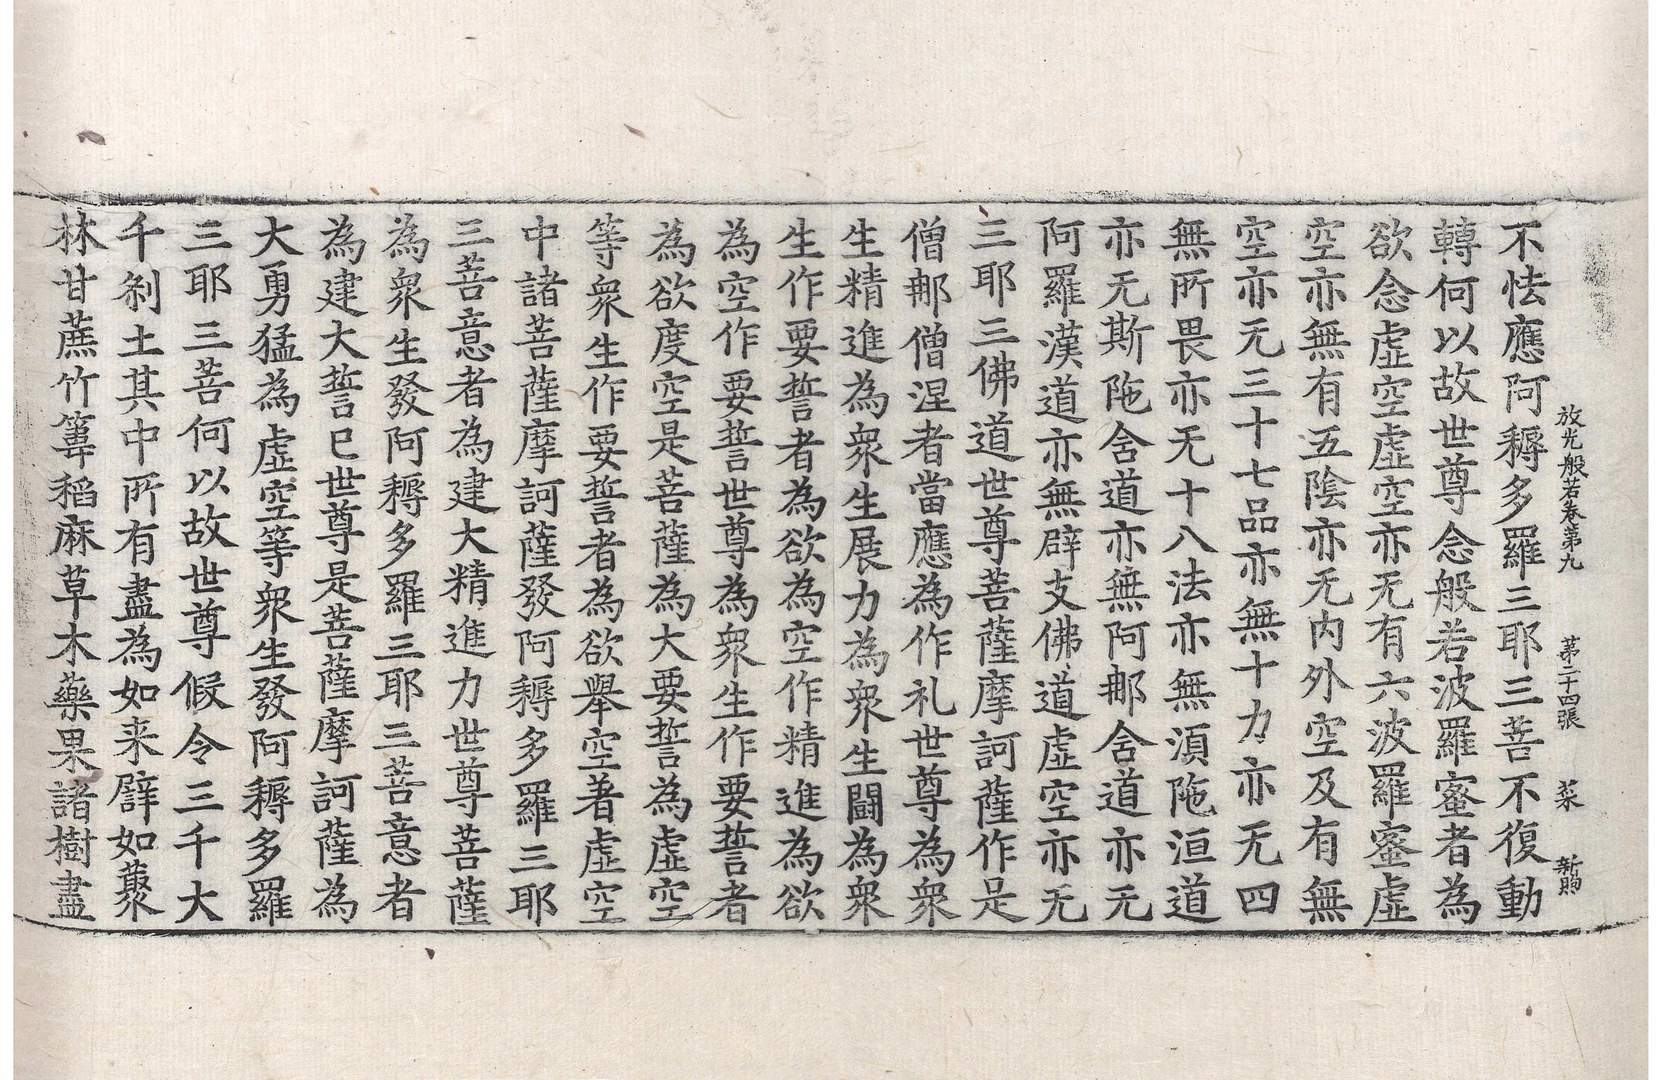 放光般若卷第九 第二十四張 菜 新昫
不怯應阿耨多羅三耶三菩不復動
轉何以故世尊念般若波羅蜜者為
欲念虛空虛空亦无有六波羅蜜虛
空亦無有五陰亦无内外空及有無
空亦无三十七品亦無十力亦无四
無所畏亦无十八法亦無湏陁洹道
亦无斯陁舍道亦無阿那舍道亦无
阿羅漢道亦無辟支佛道虛空亦无
三耶三佛道世尊菩薩摩訶薩作是
僧那僧涅者當應為作礼世尊為衆
生精進為衆生展力為衆生鬪為衆
生作要誓者為欲為空作精進為欲
為空作要誓世尊為衆生作要誓者
為欲度空是菩薩為大要誓為虛空
等衆生作要誓者為欲舉空著虛空
中諸菩薩摩訶薩發阿耨多羅三耶
三菩意者為建大精進力世尊菩薩
為衆生發阿耨多羅三耶三菩意者
為建大誓已世尊是菩薩摩訶薩為
大勇猛為虛空等衆生發阿耨多羅
三耶三菩何以故世尊假令三千大
千剎土其中所有盡為如来譬如藂
林甘蔗竹䉬稻麻草木藥果諸樹盡